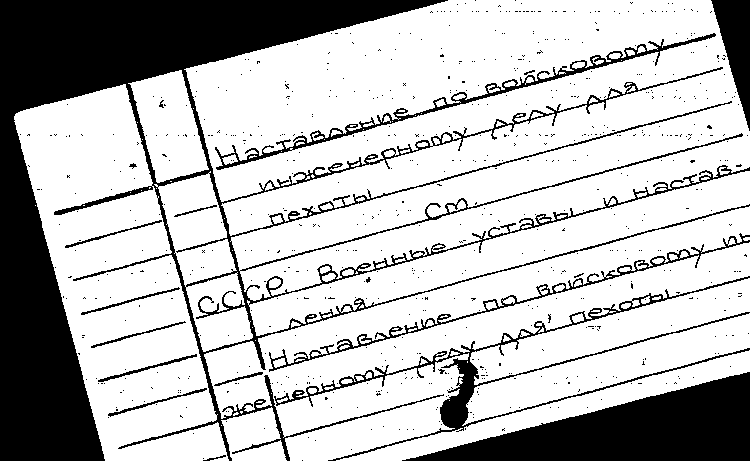 Наставление по войсковому
инженерному делу для
пехоты.
Ст.
СССР. Военные уставы и настав-
ления.
Наставление по войсковому ин
женерному делу для пехоты.